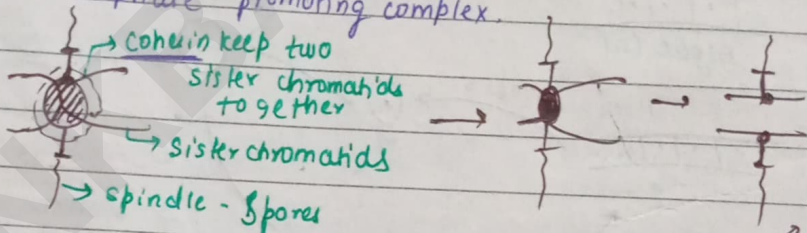 promoting complex.
cohesin keep two
sister chromatids
together
sister chromatids
spindle - Spores